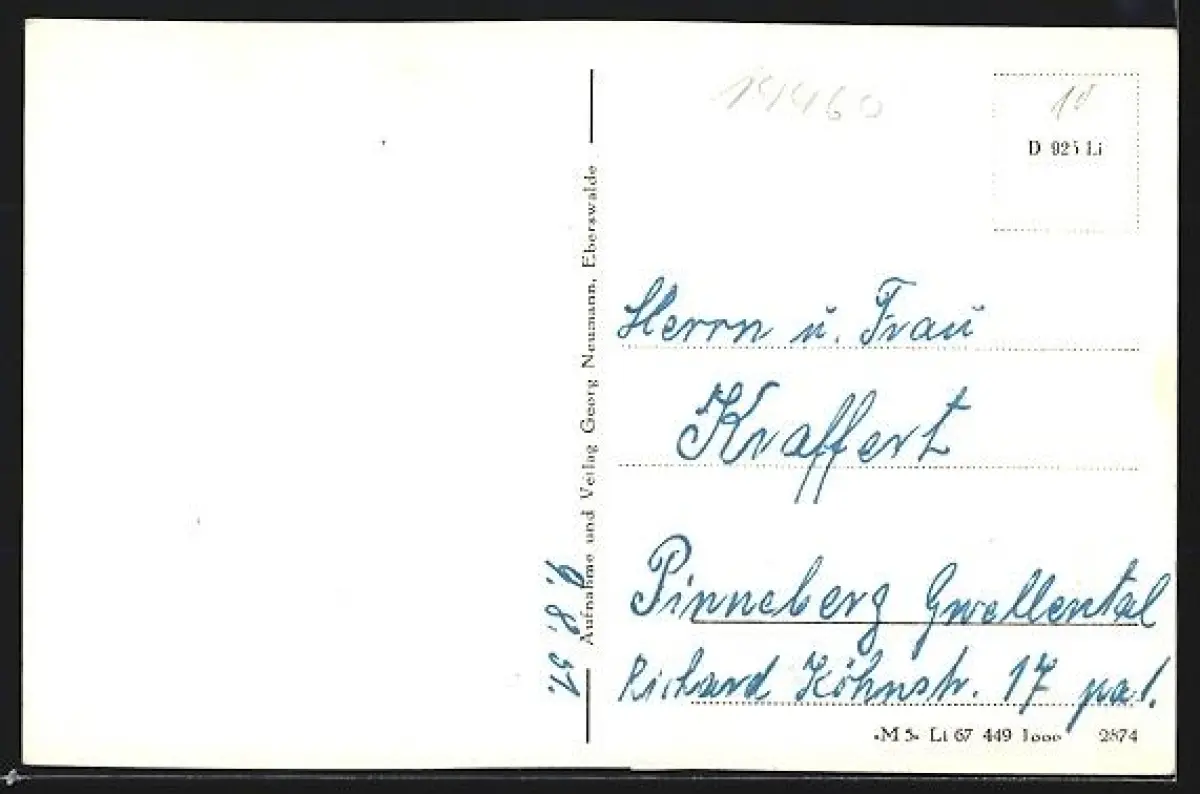 14460
10
D 925 Li
Aufnahme und Verlag Georg Neumann, Eberswalde
9. 8. 51.
Herrn u. Frau
Kraffert
Pinneberg Quellental
Richard Köhnstr. 17 pa.
•M 5• Li 67 449 1000 2874